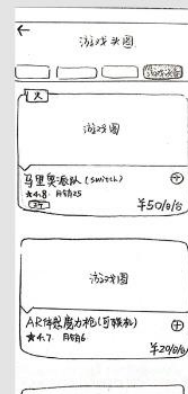 游戏头图
游戏图
马里奥派队 (switch)
★4.8 月销25
¥50/日/台
游戏图
AR体感魔力枪(可联机)
★4.7 月销6
¥20/日/台